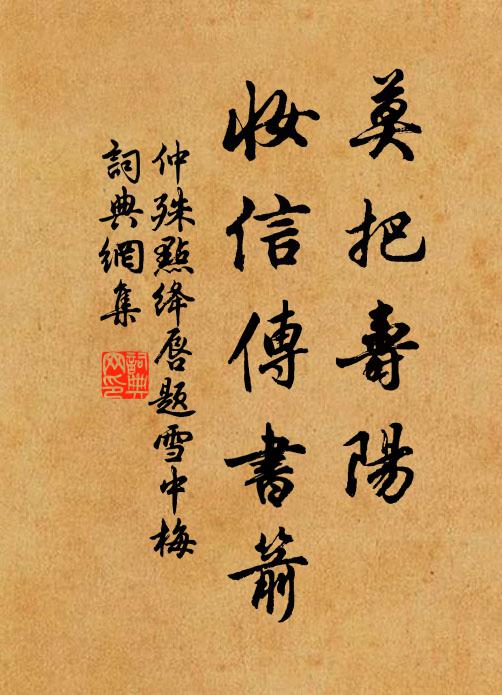 莫把壽陽
妝信傳書箭
仲殊點絳唇題雪中梅
詞典網集
詞典
网印